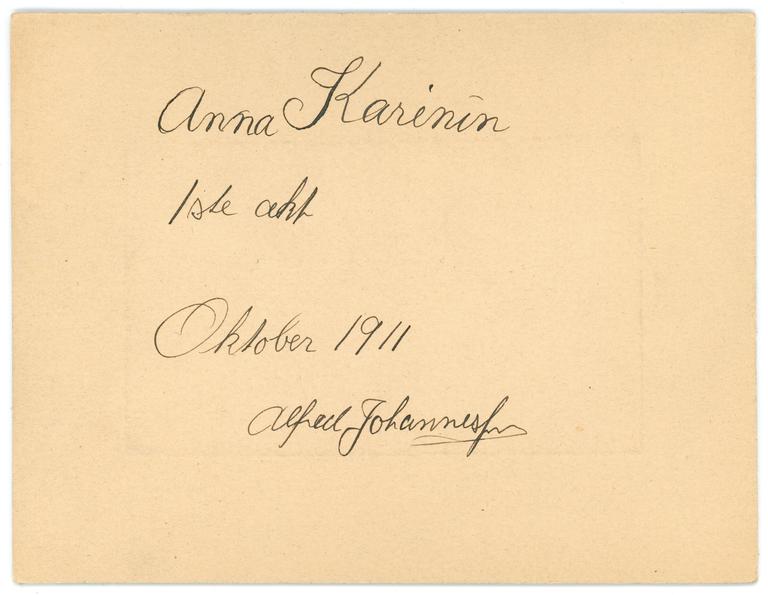 Anna Karenin
1ste akt
Oktober 1911
Alfred Johannesen